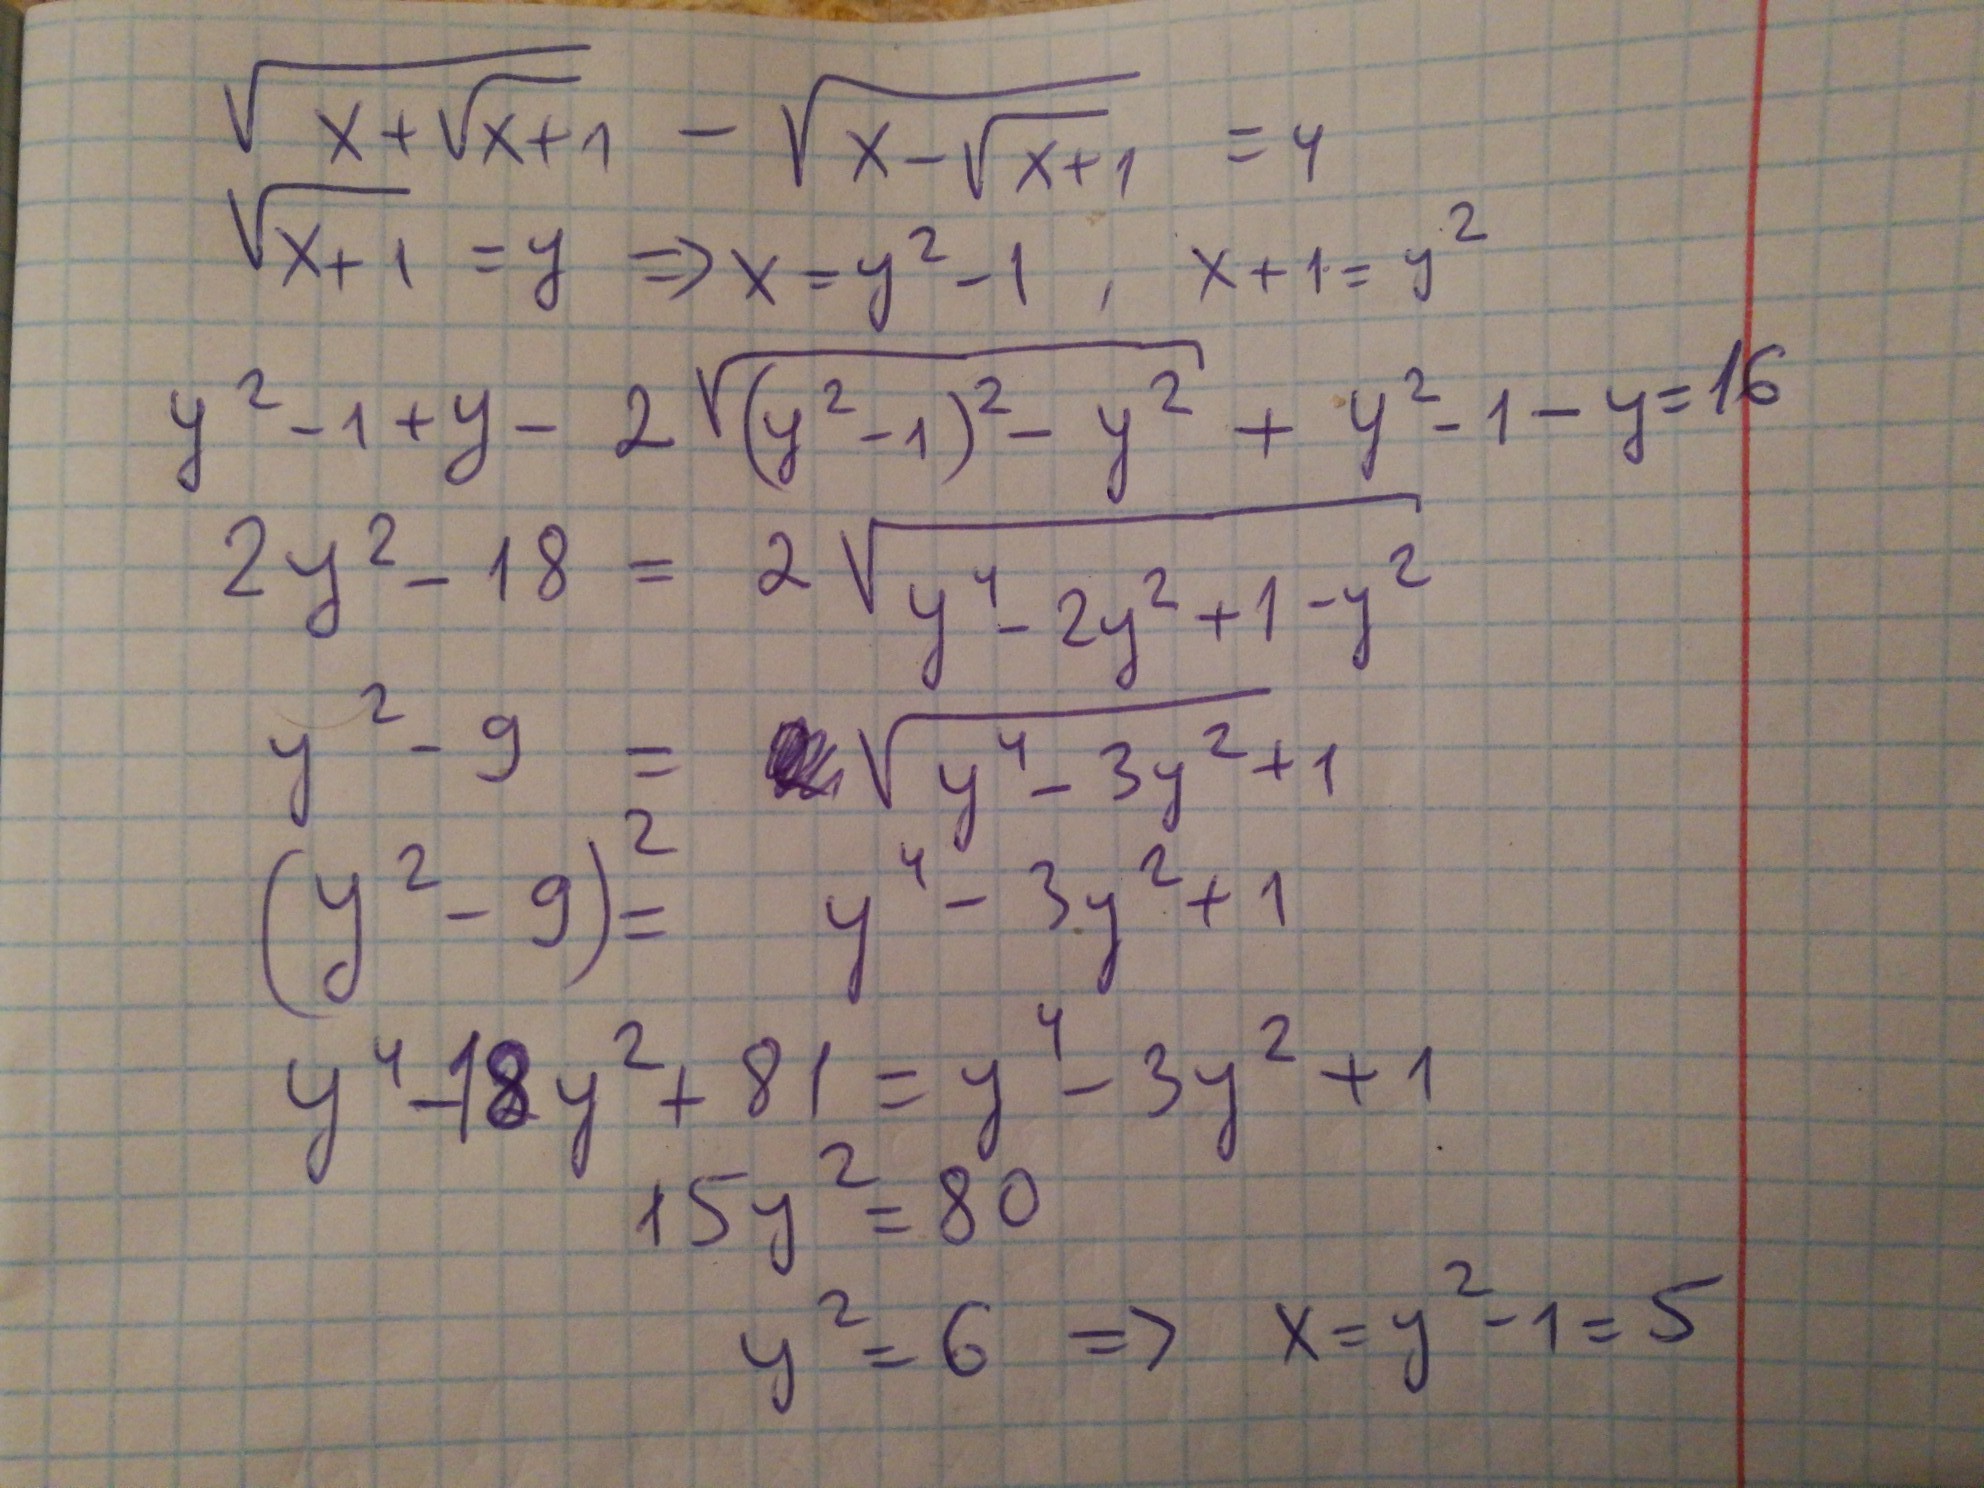 √(x+√(x+1)) − √(x−√(x+1)) = 4
√(x+1) = y ⇒ x = y² − 1 , x+1 = y²
y² − 1 + y − 2√((y²−1)² − y²) + y² − 1 − y = 16
2y² − 18 = 2√(y⁴ − 2y² + 1 − y²)
y² − 9 = √(y⁴ − 3y² + 1)
(y² − 9)² = y⁴ − 3y² + 1
y⁴ − 18y² + 81 = y⁴ − 3y² + 1
15y² = 80
y² = 6 ⇒ x = y² − 1 = 5